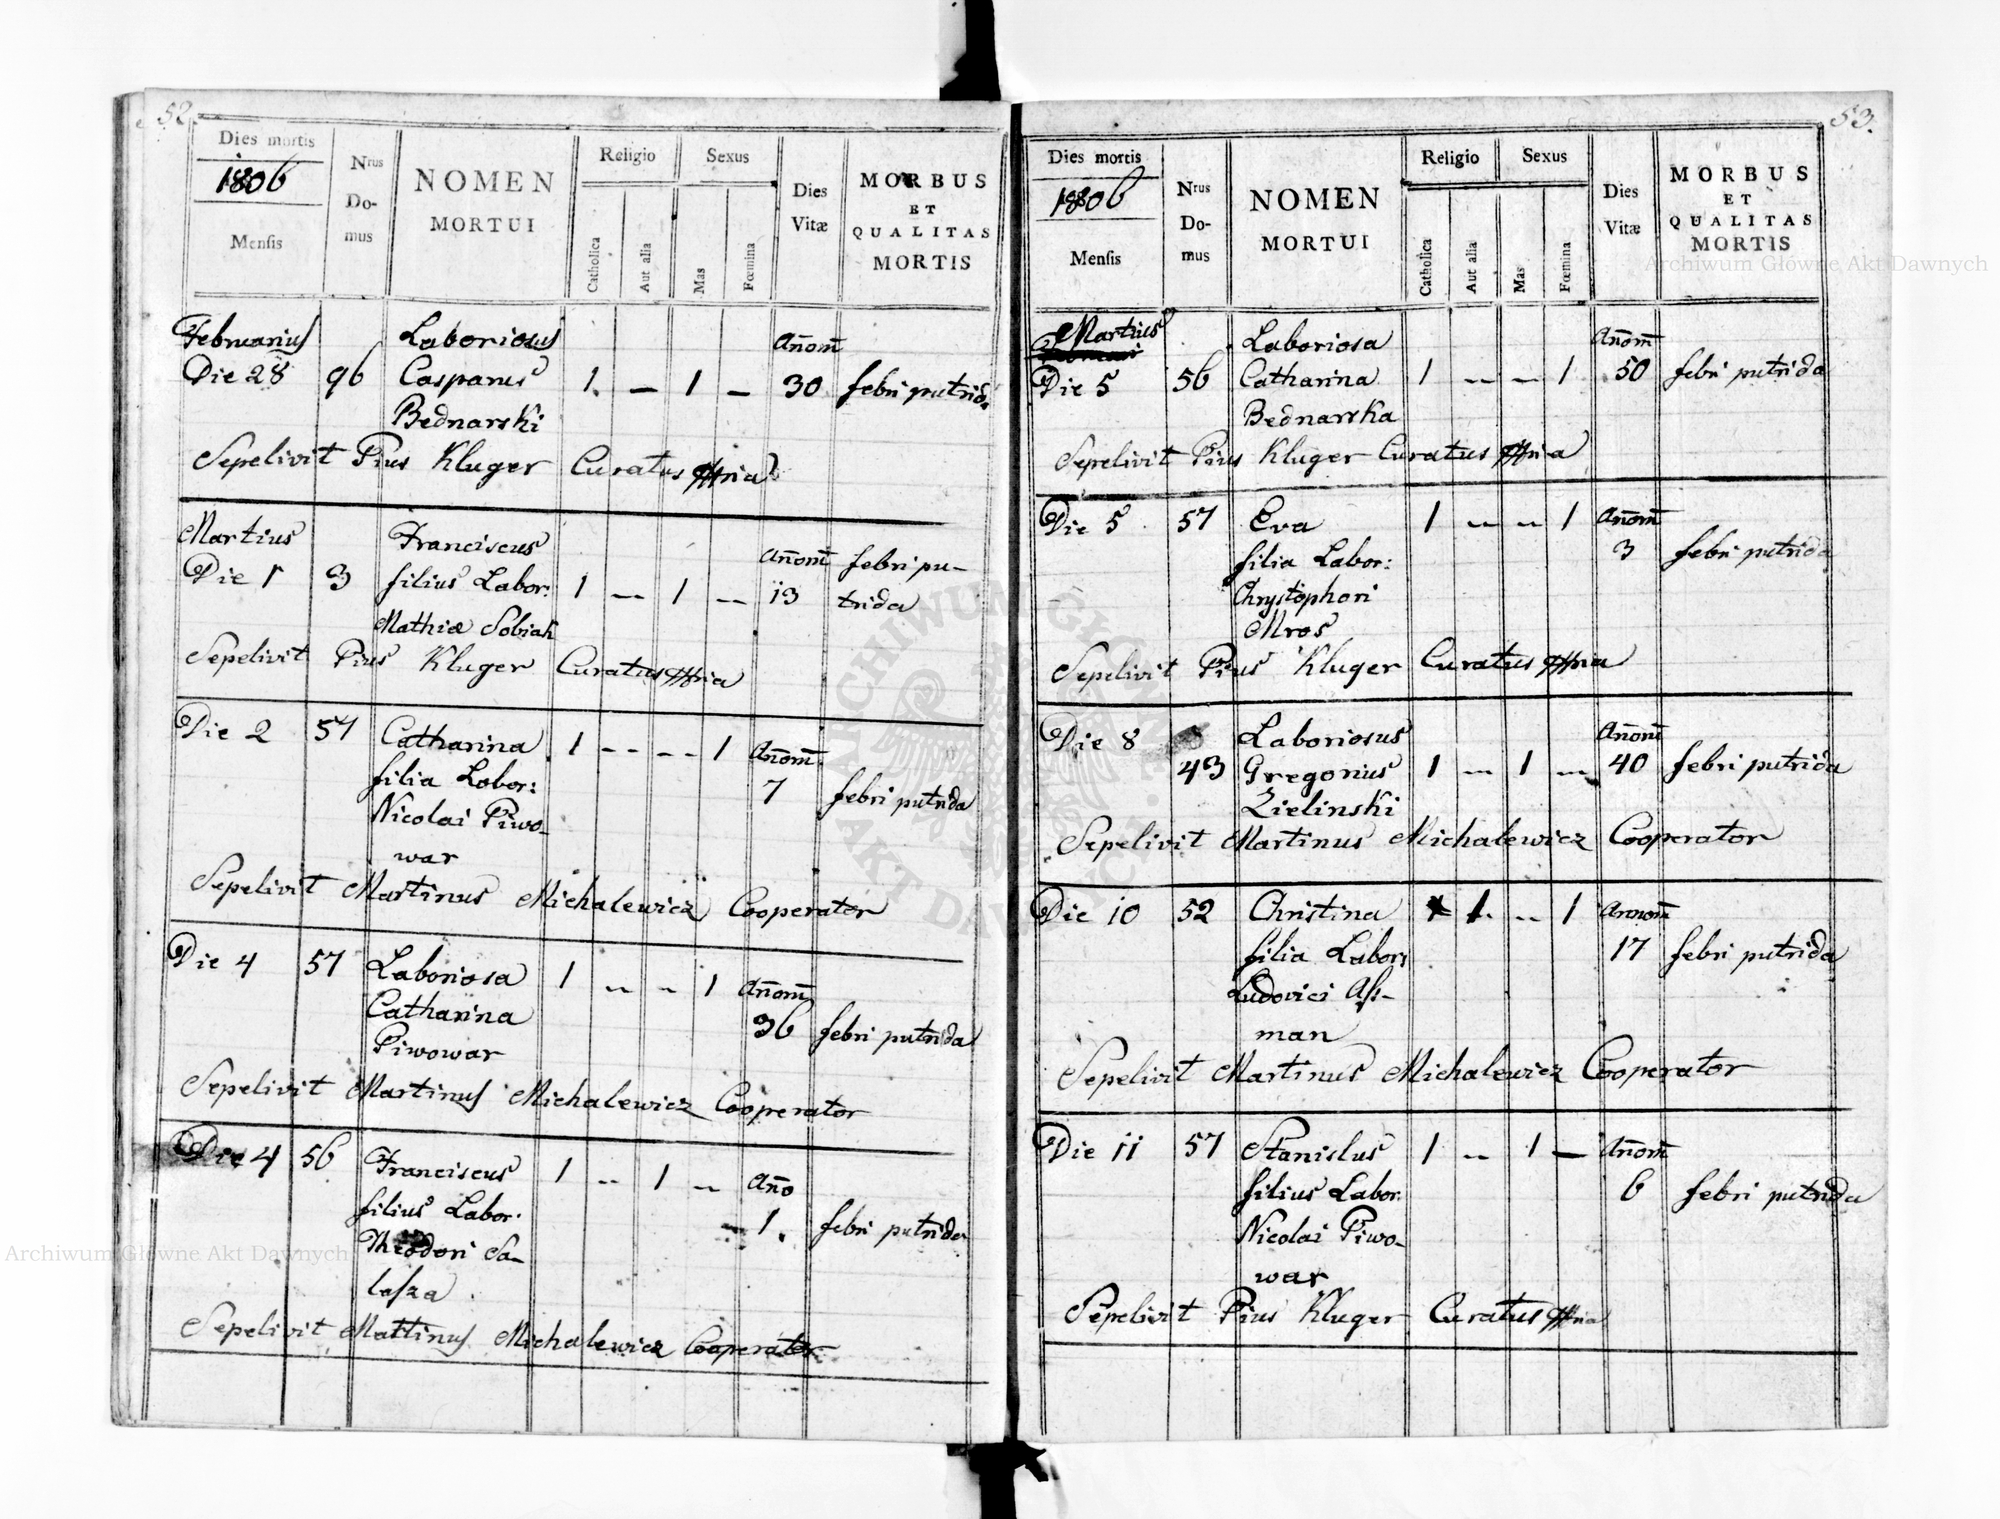 52.
Dies mortis
1806
Mensis
Nrus
Do-
mus
NOMEN
MORTUI
Religio
Catholica
Aut alia
Sexus
Mas
Fœmina
Dies
Vitæ
MORBUS
ET
QUALITAS
MORTIS
Februarius Laboriosus Añorũ
Die 28 96 Casparus 1. – 1 – 30 febri putrida
Bednarski
Sepelivit Pius Kluger Curatus
Martius Franciscus Añorũ febri pu-
Die 1 3 filius Labor: 1 -- 1 -- 13 trida
Mathiæ Sobiak
Sepelivit Pius Kluger Curatus
Die 2 57 Catharina 1 -- -- 1 Añorũ
filia Labor: 7 febri putrida
Nicolai Piwo-
war
Sepelivit Martinus Michalewicz Cooperator
Die 4 57 Laboriosa 1 -- - 1 Añorũ
Catharina 36 febri putrida
Piwowar
Sepelivit Martinus Michalewicz Cooperator
Die 4 56 Franciscus 1 -- 1 -- Año
filius Labor: 1. febri putrida
Theodori Sa-
lasza
Sepelivit Martinus Michalewicz Cooperator
53.
Dies mortis
1806
Mensis
Nrus
Do-
mus
NOMEN
MORTUI
Religio
Catholica
Aut alia
Sexus
Mas
Fœmina
Dies
Vitæ
MORBUS
ET
QUALITAS
MORTIS
Martius Laboriosa Añorũ
Die 5 56 Catharina 1 -- -- 1 50 febri putrida
Bednarska
Sepelivit Pius Kluger Curatus
Die 5 57 Eva 1 -- -- 1 Añorũ
filia Labor: 3 febri putrida
Chrystophori
Mros
Sepelivit Pius Kluger Curatus
Die 8 Laboriosus Añorũ
43 Gregorius 1 -- 1 -- 40 febri putrida
Zielinski
Sepelivit Martinus Michalewicz Cooperator
Die 10 52 Christina 1. -- 1 Annorũ
filia Labor: 17 febri putrida
Ludovici Ass-
man
Sepelivit Martinus Michalewicz Cooperator
Die 11 57 Stanislus 1 -- 1 – Añorũ
filius Labor: 6 febri putrida
Nicolai Piwo-
war
Sepelivit Pius Kluger Curatus
Archiwum Główne Akt Dawnych
Archiwum Główne Akt Dawnych
ARCHIWUM GŁÓWNE
AKT DAWNYCH